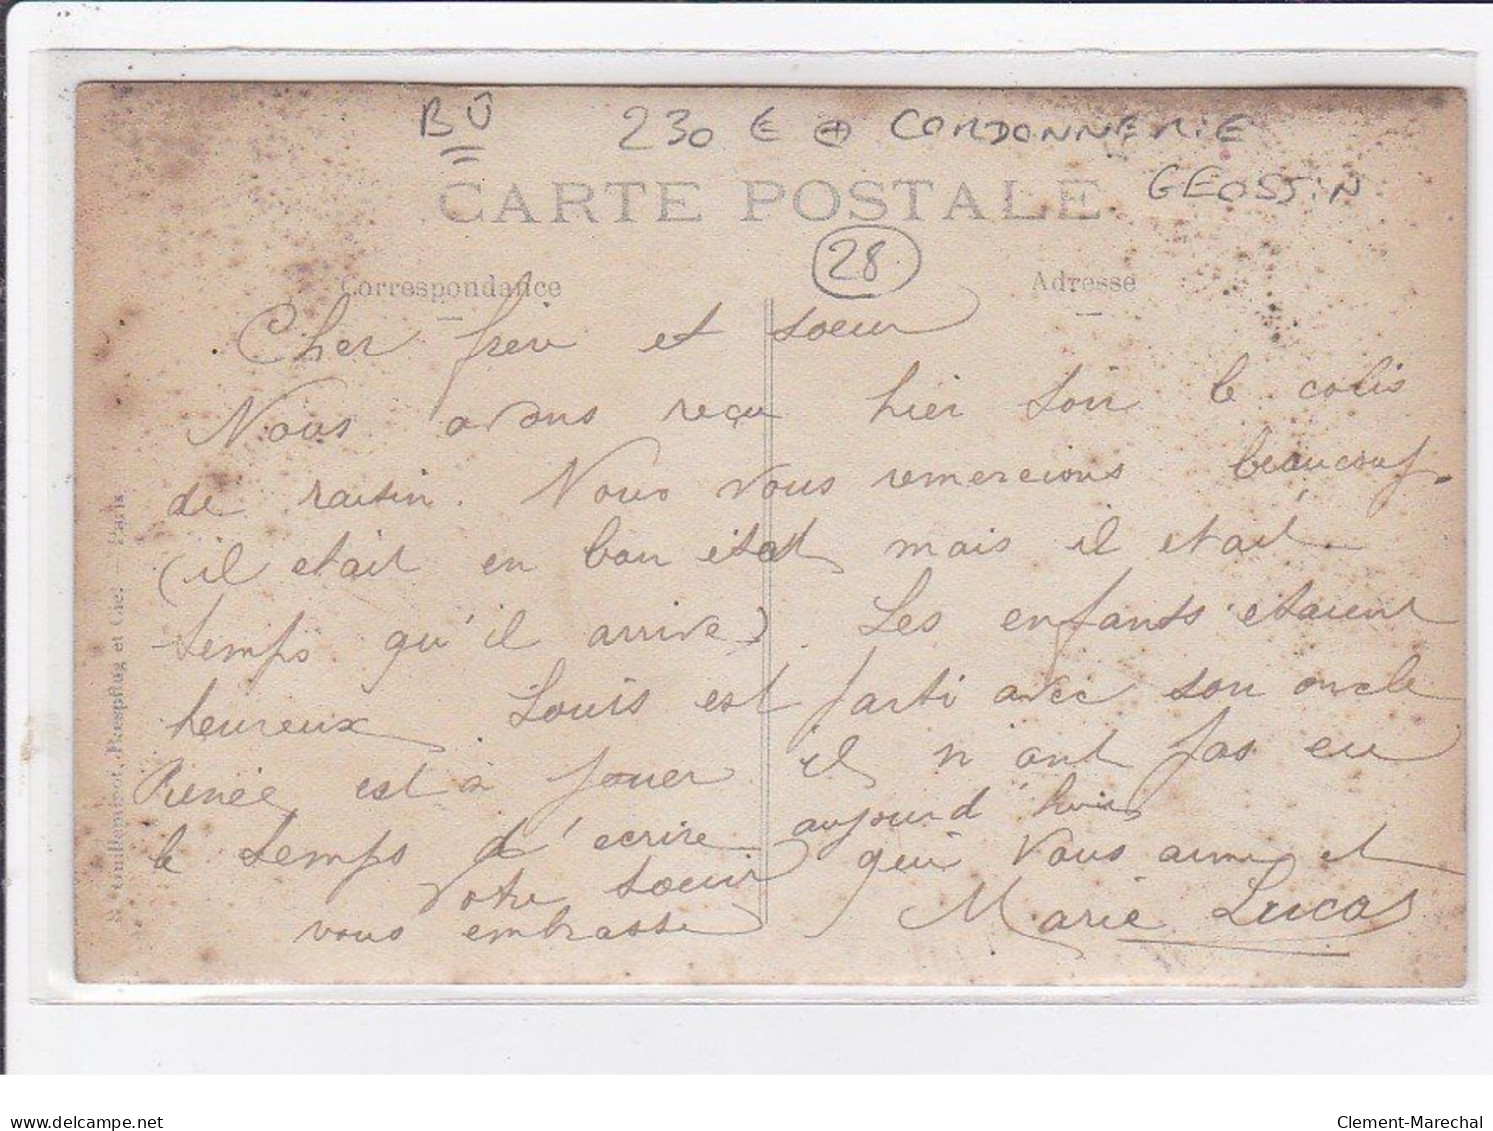 BÛ 230 € ⊕ CORDONNERIE
GEOSSIN
CARTE POSTALE
28
Correspondance
Adresse
Cher frère et soeur
Nous avons reçu hier soir le colis
de raisin. Nous vous remercions beaucoup.
(il etait en bon état mais il etait
temps qu'il arrive). Les enfants etaient
heureux. Louis est parti avec son oncle
Renée est à jouer il n'ont pas eu
le temps d'ecrire aujourd'hui
Votre soeur qui vous aime et
vous embrasse Marie Lucas
Guilleminot, Bœspflug et Cie. - Paris
delcampe.net
Clement-Marechal